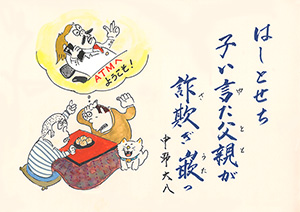 はしとせち
子い言た父親が
詐欺ぎ
中野大八
ATMへ
ようこそ!